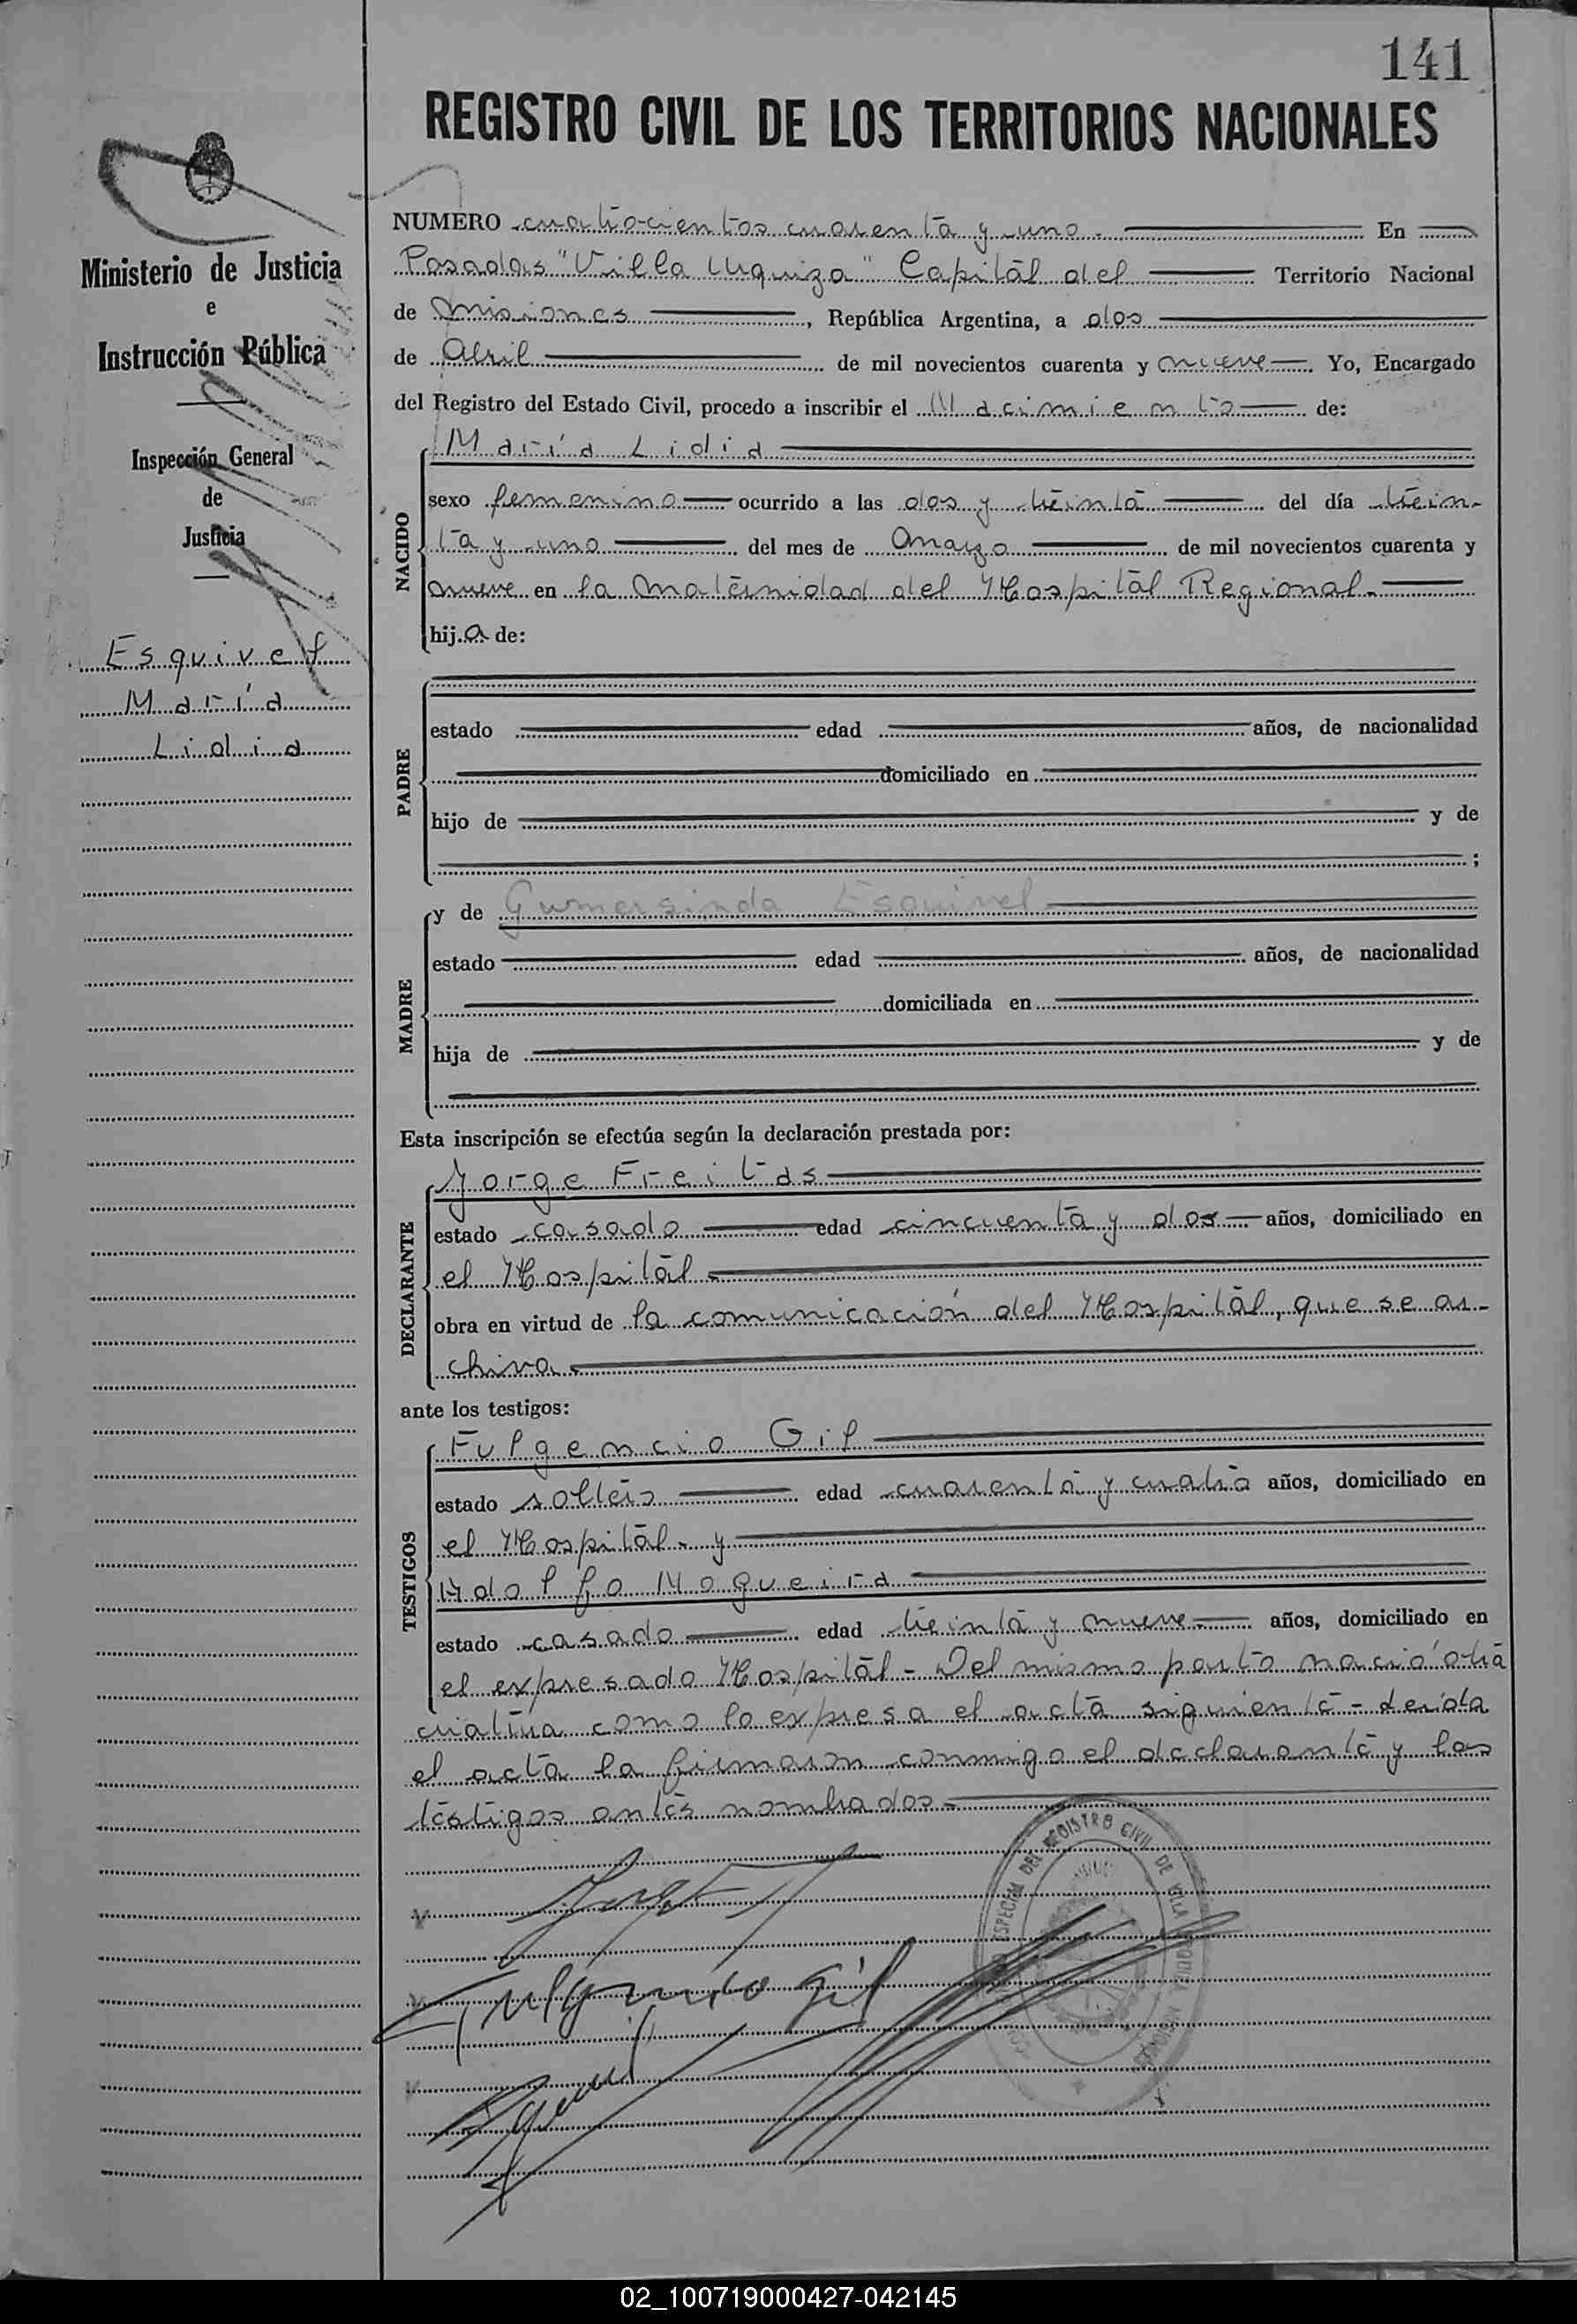 141
REGISTRO CIVIL DE LOS TERRITORIOS NACIONALES
Ministerio de Justicia
e
Instrucción Pública
Inspección General
de
Justicia
Esquivel
María
Lidia
NUMERO cuatrocientos cuarenta y uno. En
Posadas "Villa Urquiza" Capital del Territorio Nacional
de Misiones, República Argentina, a dos
de Abril de mil novecientos cuarenta y nueve. Yo, Encargado
del Registro del Estado Civil, procedo a inscribir el Nacimiento de:
María Lidia
NACIDO
sexo femenino ocurrido a las dos y treinta del día trein-
ta y uno del mes de Marzo de mil novecientos cuarenta y
nueve en la Maternidad del Hospital Regional.
hija de:
PADRE
estado edad años, de nacionalidad
domiciliado en
hijo de y de
;
MADRE
y de Gumersinda Esquivel
estado edad años, de nacionalidad
domiciliada en
hija de y de
Esta inscripción se efectúa según la declaración prestada por:
DECLARANTE
Jorge Freitas
estado casado edad cincuenta y dos años, domiciliado en
el Hospital.
obra en virtud de la comunicación del Hospital, que se ar-
chiva.
ante los testigos:
TESTIGOS
Fulgencio Gil
estado soltero edad cuarenta y cuatro años, domiciliado en
el Hospital. y
Adolfo Nogueira
estado casado edad treinta y nueve años, domiciliado en
el expresado Hospital - Del mismo parto nació otra
criatura como lo expresa el acta siguiente - Leída
el acta la firmaron conmigo el declarante y los
testigos antes nombrados.
Fulgencio Gil
REGISTRO CIVIL DE VILLA
02_100719000427-042145